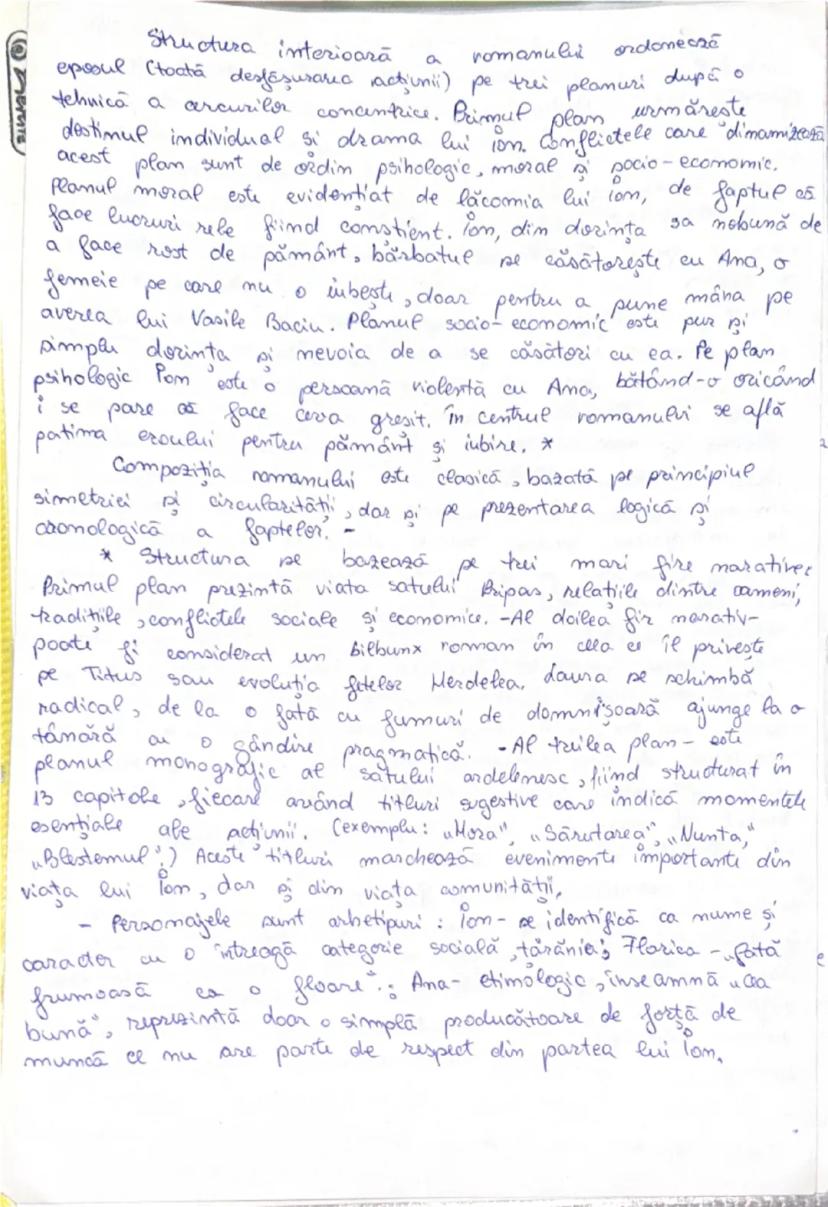 Structura interioară a romanului ordonează
eposul (toată desfășurarea acțiunii) pe trei planuri după o
tehnică a arcurilor concentrice. Primul plan urmărește
destinul individual si drama lui Ion. Conflictele care dinamizează
acest plan sunt de ordin psihologic, moral și socio-economic.
Planul moral este evidențiat de lăcomia lui Ion, de faptul că
face lucruri rele fiind conștient. Ion, din dorința sa nebună de
a face rost de pământ, bărbatul se căsătorește cu Ana, o
femeie pe care nu o iubește, doar pentru a pune mâna pe
averea lui Vasile Baciu. Planul socio-economic este pur și
simplu dorința și nevoia de a se căsători cu ea. Pe plan
psihologic Ion este o persoană violentă cu Ana, bătând-o oricând
i se pare că face ceva greșit. În centrul romanului se află
patima eroului pentru pământ și iubire. *
Compoziția romanului este clasică, bazată pe principiul
simetriei și circularității, dar și pe prezentarea logică și
cronologică a faptelor. -
* Structura se bazează pe trei mari fire narative:
Primul plan prezintă viata satului Pripas, relațiile dintre oameni,
tradițiile, conflictele sociale și economice. -Al doilea fir narativ-
poate fi considerat un roman în ceea ce îl privește
pe Titus sau evoluția fetelor Herdelea. Laura se schimbă
radical, de la o fată cu fumuri de domnișoară ajunge la o
tânără cu o gândire pragmatică. -Al treilea plan- este
planul monografic al satului ardelenesc, fiind structurat în
13 capitole, fiecare având titluri sugestive care indică momentele
esențiale ale acțiunii. (exemplu: „Hora", „Sărutarea", „Nunta,"
„Blestemul".) Aceste titluri marchează evenimente importante din
viața lui Ion, dar și din viața comunității.
- Personajele sunt arhetipuri: Ion- se identifică ca nume și
caracter cu o întreagă categorie socială, țărănia; Florica -„fată
frumoasă ca o floare".; Ana- etimologic, înseamnă „cea
bună", reprezintă doar o simplă producătoare de forță de
muncă ce nu are parte de respect din partea lui Ion.